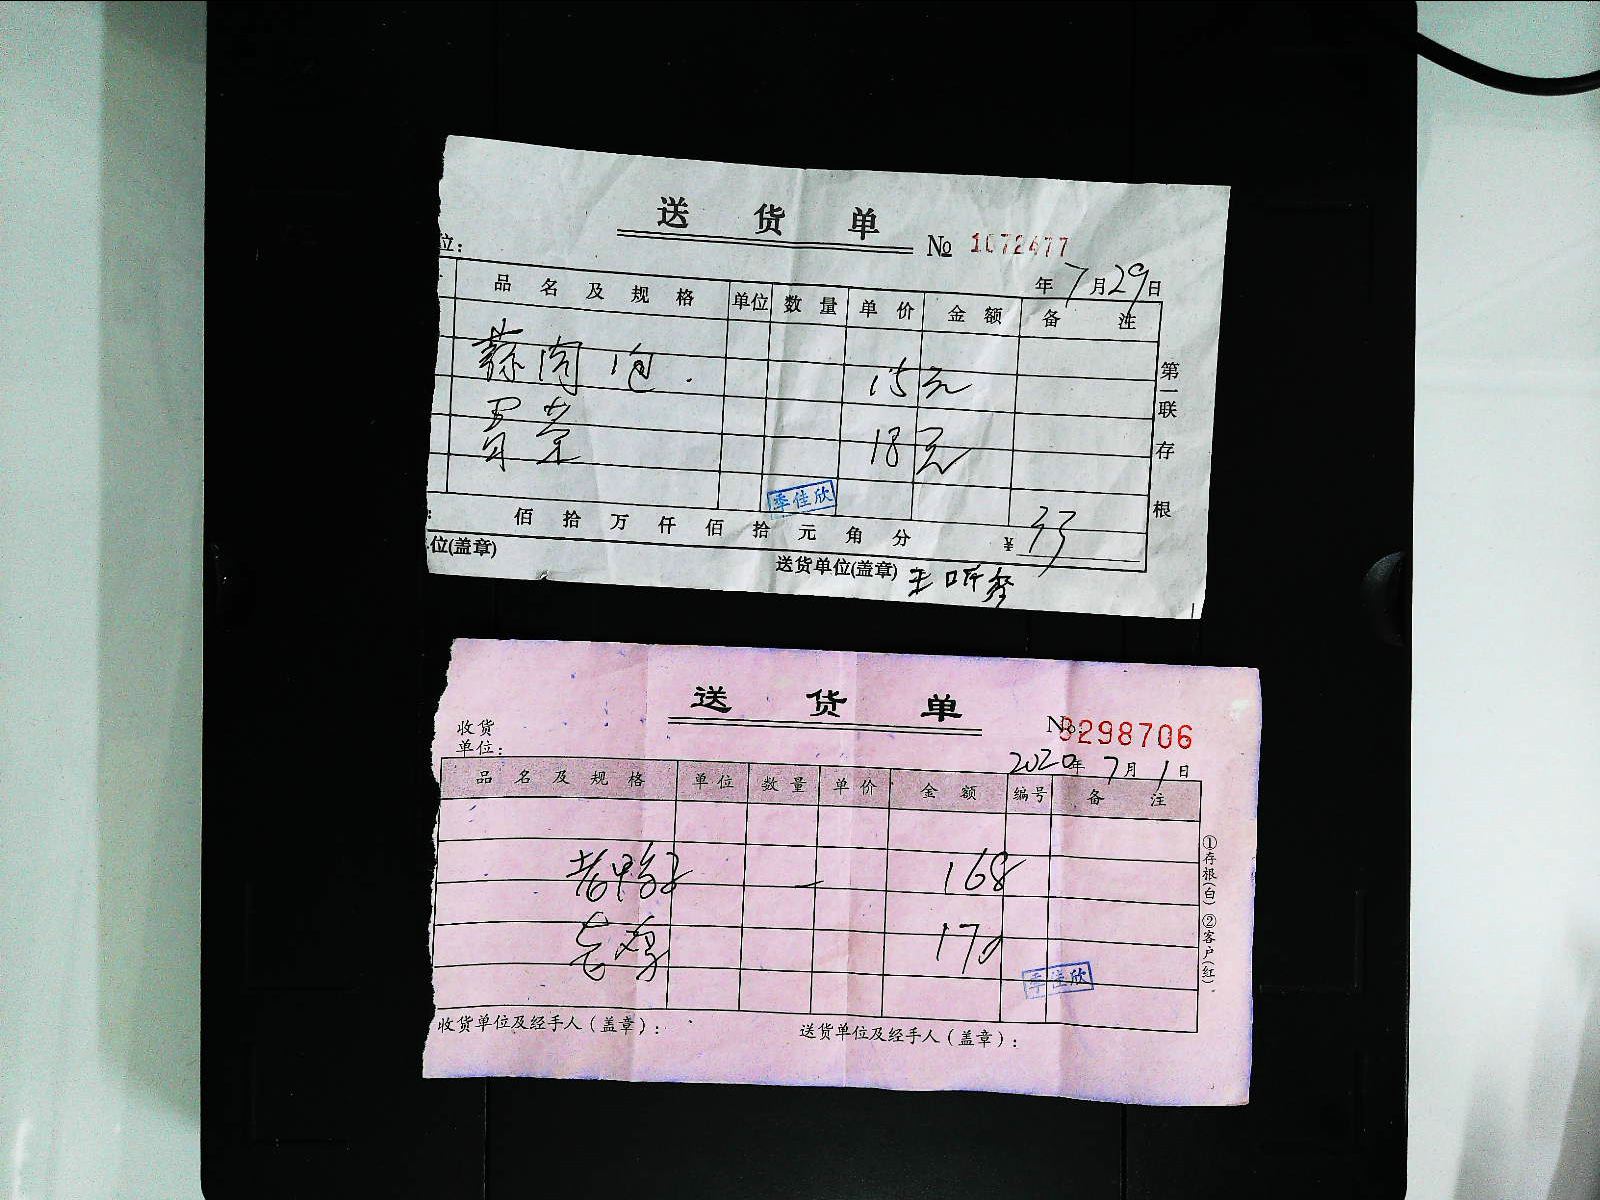 送 货 单
№ 1072477
位：
年 7 月 29 日
品 名 及 规 格 单位 数 量 单 价 金 额 备 注
蒜肉包 15元
买菜 18元
季佳欣
佰 拾 万 仟 佰 拾 元 角 分 ¥ 33
位(盖章) 送货单位(盖章) 王
第一联 存根
送 货 单
收货
单位：
№: 3298706
2020年 7月 1日
品 名 及 规 格 单 位 数 量 单 价 金 额 编号 备 注
老鸭子 一 168
老鸡 170
季佳欣
收货单位及经手人（盖章）： 送货单位及经手人（盖章）：
①存根(白) ②客户(红)